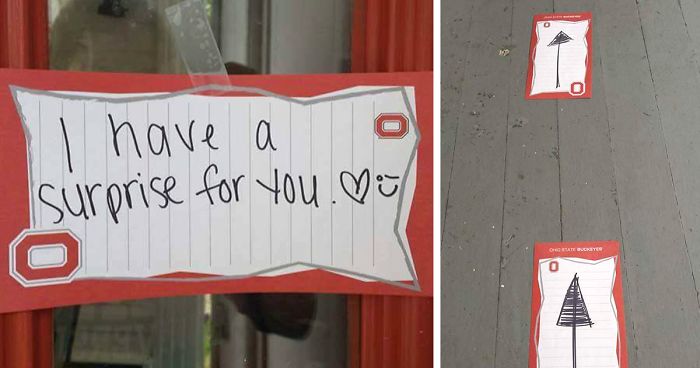 I have a
surprise for you. ♡ ü
OHIO STATE BUCKEYES
OHIO STATE BUCKEYES